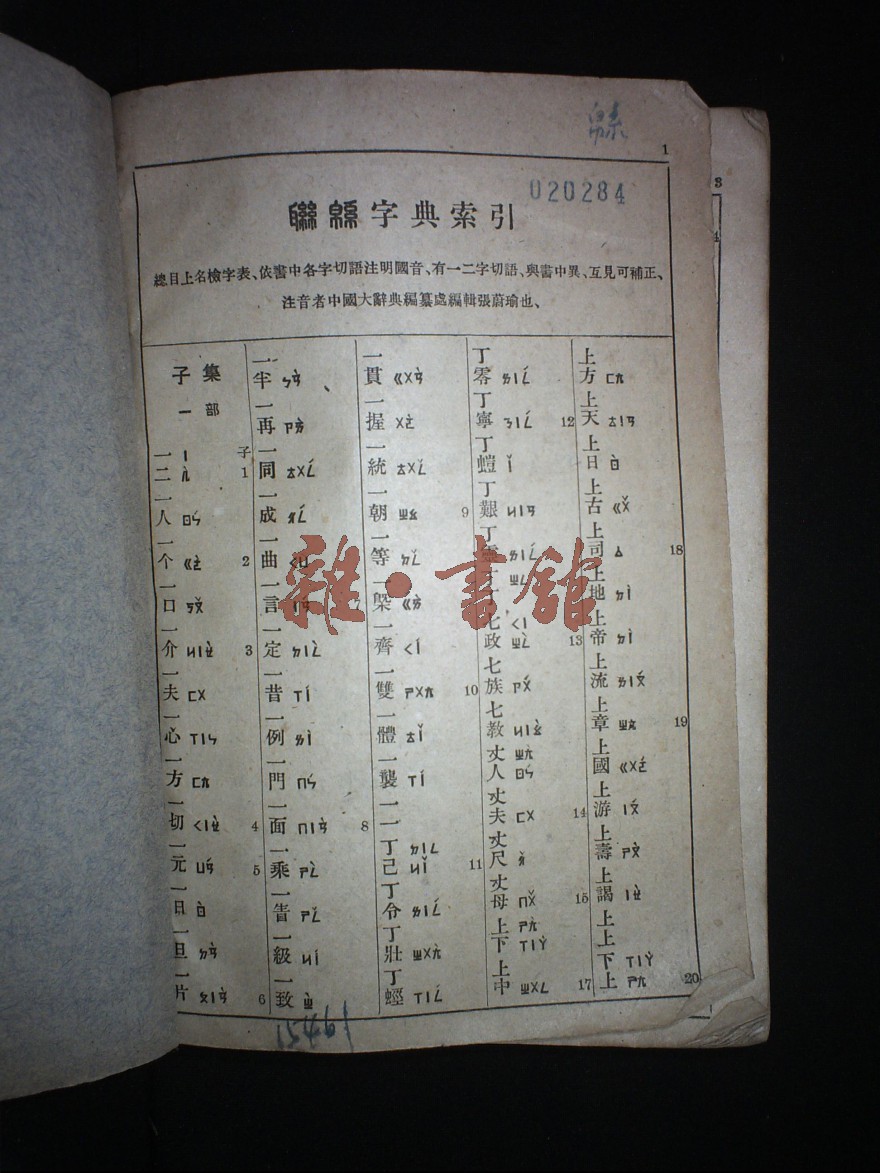 1
020284
聯緜字典索引
總目上名檢字表、依書中各字切語注明國音、有一二字切語、與書中異、互見可補正、
注音者中國大辭典編纂處編輯張蔚瑜也、
子集
一部
一 ㄧ 子
一二 ㄦˋ 1
一人 ㄖㄣˊ
一个 ㄍㄜˋ 2
一口 ㄎㄡˇ
一介 ㄐㄧㄝˋ 3
一夫 ㄈㄨ
一心 ㄒㄧㄣ
一方 ㄈㄤ
一切 ㄑㄧㄝˋ 4
一元 ㄩㄢˊ 5
一日 ㄖˋ
一旦 ㄉㄢˋ
一片 ㄆㄧㄢˋ 6
一半 ㄅㄢˋ
一再 ㄗㄞˋ
一同 ㄊㄨㄥˊ
一成 ㄔㄥˊ
一曲 ㄑㄩ
一言 ㄧㄢˊ 7
一定 ㄉㄧㄥˋ
一昔 ㄒㄧˊ
一例 ㄌㄧˋ
一門 ㄇㄣˊ
一面 ㄇㄧㄢˋ 8
一乘 ㄕㄥˋ
一眚 ㄕㄥˇ
一級 ㄐㄧˊ
一致 ㄓˋ
一貫 ㄍㄨㄢˋ
一握 ㄨㄛˋ
一統 ㄊㄨㄥˇ
一朝 ㄓㄠ 9
一等 ㄉㄥˇ
一槩 ㄍㄞˋ
一齊 ㄑㄧˊ
一雙 ㄕㄨㄤ 10
一體 ㄊㄧˇ
一襲 ㄒㄧˊ
一一
丁 ㄉㄧㄥ
己 ㄐㄧˇ 11
丁令 ㄌㄧㄥˊ
丁壯 ㄓㄨㄤˋ
丁蛵 ㄒㄧㄥˊ
丁零 ㄌㄧㄥˊ
丁寧 ㄋㄧㄥˊ 12
丁螘 ㄧˇ
丁艱 ㄐㄧㄢ
七 ㄑㄧ
政 ㄓㄥˋ 13
七族 ㄗㄨˊ
七教 ㄐㄧㄠˋ
丈 ㄓㄤˋ
人 ㄖㄣˊ
丈夫 ㄈㄨ 14
丈尺 ㄔˇ
丈母 ㄇㄨˇ 15
上 ㄕㄤˋ
下 ㄒㄧㄚˋ
上中 ㄓㄨㄥ 17
上方 ㄈㄤ
上天 ㄊㄧㄢ
上日 ㄖˋ
上古 ㄍㄨˇ
上司 ㄙ 18
上地 ㄉㄧˋ
上帝 ㄉㄧˋ
上流 ㄌㄧㄡˊ
上章 ㄓㄤ 19
上國 ㄍㄨㄛˊ
上游 ㄧㄡˊ
上壽 ㄕㄡˋ
上謁 ㄧㄝˋ
上上
下 ㄒㄧㄚˋ
上 ㄕㄤˋ 20
雜·書館